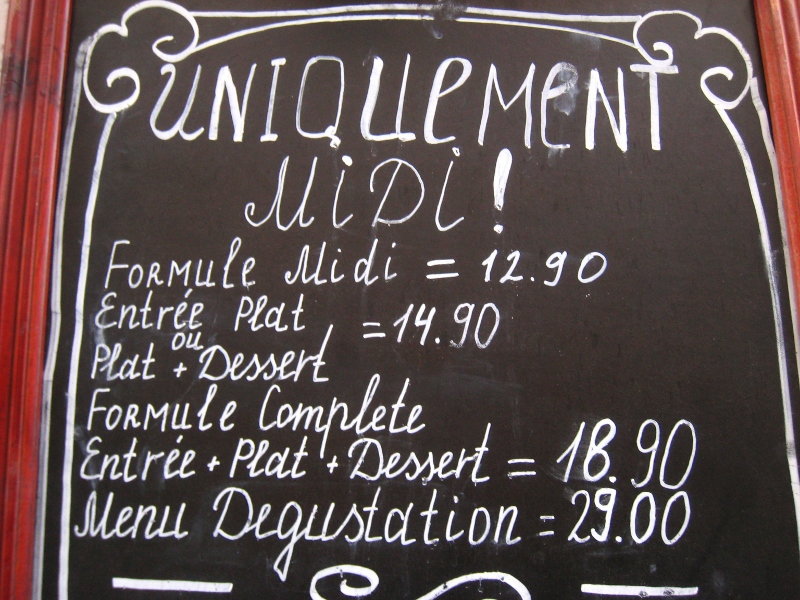 UNIQUEMENT
MiDi!
FORMULE Midi = 12.90
Entrée Plat
ou = 14.90
Plat + Dessert
FORMULE Complete
Entrée + Plat + Dessert = 18.90
Menu Degustation = 29.00